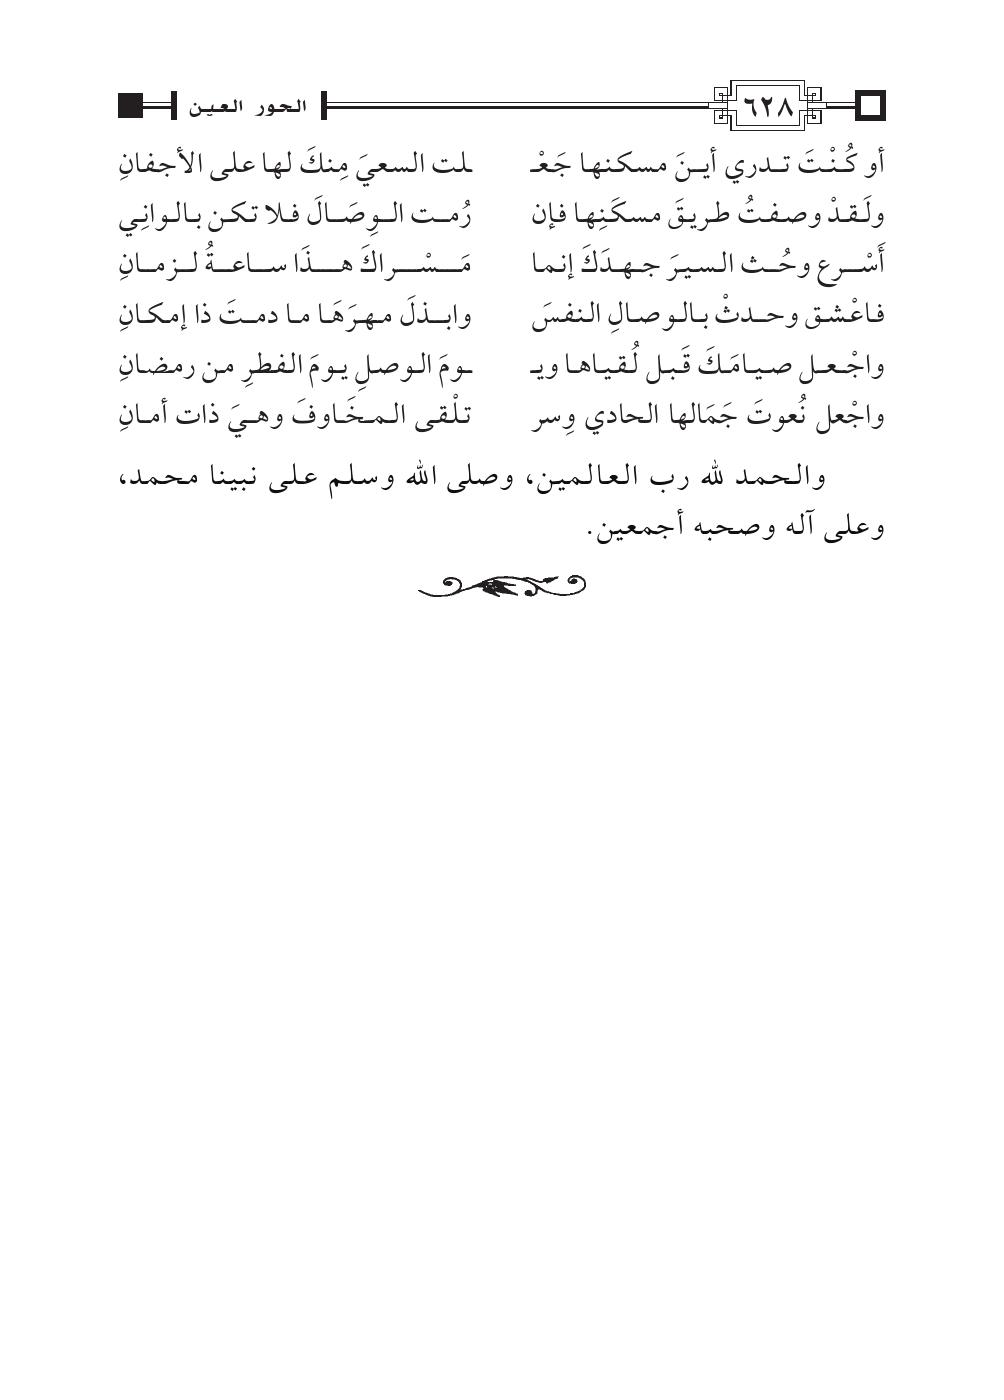 ٦٢٨ الحور العين
أو كُنْتَ تدري أينَ مسكنها جَعْـ ـلت السعيَ مِنكَ لها على الأجفانِ
ولَقدْ وصفتُ طريقَ مسكَنِها فإن رُمت الوِصَالَ فلا تكن بالوانِي
أَسْرع وحُث السيرَ جهدَكَ إنما مَسْراكَ هذَا ساعةُ لزمانِ
فاعْشق وحدثْ بالوصالِ النفسَ وابذلَ مهرَهَا ما دمتَ ذا إمكانِ
واجْعل صيامَكَ قَبل لُقياها ويـ ـومَ الوصلِ يومَ الفطرِ من رمضانِ
واجْعل نُعوتَ جَمَالها الحادي وِسر تلْقى المخَاوفَ وهيَ ذات أمانِ
والحمد لله رب العالمين، وصلى الله وسلم على نبينا محمد،
وعلى آله وصحبه أجمعين.